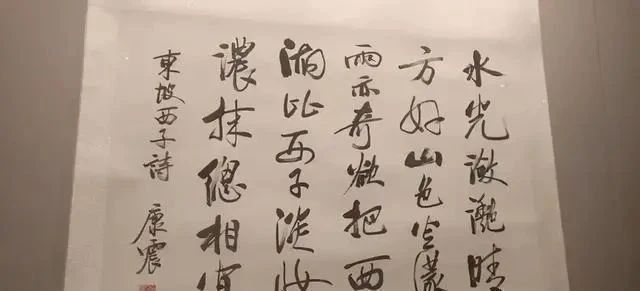 水光瀲灩晴
方好山色空濛
雨亦奇欲把西
湖比西子淡妝
濃抹總相宜
東坡西子詩 康震